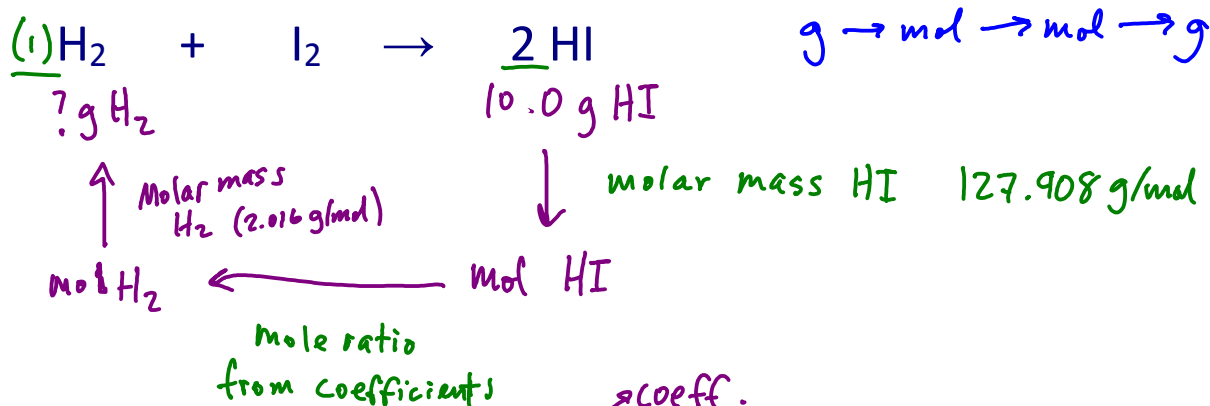 (1)H₂ + I₂ → 2 HI g → mol → mol → g
? g H₂ 10.0 g HI
Molar mass molar mass HI 127.908 g/mol
H₂ (2.016 g/mol)
mol H₂ mol HI
mole ratio
from coefficients coeff.